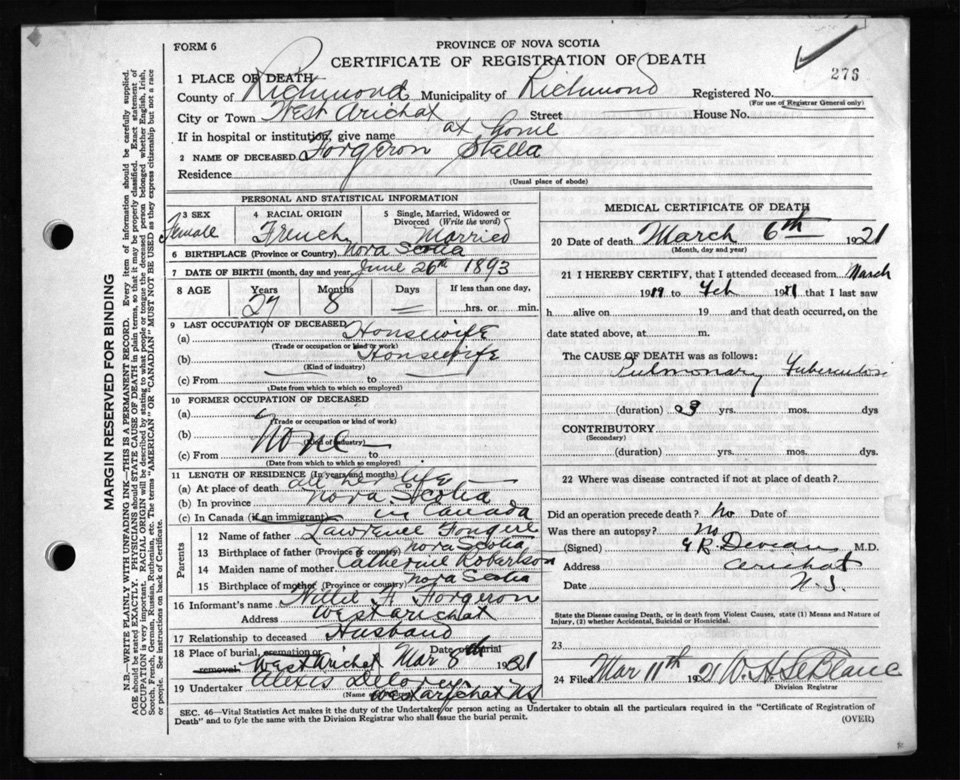 FORM 6
PROVINCE OF NOVA SCOTIA
CERTIFICATE OF REGISTRATION OF DEATH
276
1 PLACE OF DEATH
County of Richmond Municipality of Richmond Registered No.
(For use of Registrar General only)
City or Town West Arichat Street House No.
If in hospital or institution, give name at home
2 NAME OF DECEASED Forgeron Stella
Residence
(Usual place of abode)
PERSONAL AND STATISTICAL INFORMATION
3 SEX 4 RACIAL ORIGIN 5 Single, Married, Widowed or Divorced (Write the word)
Female French Married
6 BIRTHPLACE (Province or Country) Nova Scotia
7 DATE OF BIRTH (month, day and year) June 26th 1893
8 AGE Years Months Days If less than one day,
27 8 — hrs. or min.
9 LAST OCCUPATION OF DECEASED
(a) Housewife
(Trade or occupation or kind of work)
(b) Housewife
(Kind of industry)
(c) From to
(Date from which to which so employed)
10 FORMER OCCUPATION OF DECEASED
(a)
(Trade or occupation or kind of work)
(b) None
(Kind of industry)
(c) From to
(Date from which to which so employed)
11 LENGTH OF RESIDENCE (In years and months)
(a) At place of death all her life
(b) In province Nova Scotia
(c) In Canada (if an immigrant) in Canada
Parents
12 Name of father Lawrence
13 Birthplace of father (Province or country) Nova Scotia
14 Maiden name of mother Catherine Robertson
15 Birthplace of mother (Province or country) Nova Scotia
16 Informant's name Willie A Forgeron
Address West Arichat
17 Relationship to deceased Husband
18 Place of burial, cremation or removal West Arichat Date of burial Mar 8th 1921
19 Undertaker Alexis
(Name West Arichat NS
SEC. 46—Vital Statistics Act makes it the duty of the Undertaker or person acting as Undertaker to obtain all the particulars required in the "Certificate of Registration of
Death" and to fyle the same with the Division Registrar who shall issue the burial permit.
(OVER)
MEDICAL CERTIFICATE OF DEATH
20 Date of death March 6th 1921
(Month, day and year)
21 I HEREBY CERTIFY, that I attended deceased from March
1919 to Feb 19 that I last saw
h alive on 19 and that death occurred, on the
date stated above, at m.
The CAUSE OF DEATH was as follows:
Pulmonary Tuberculosis
(duration) yrs. mos. dys
CONTRIBUTORY
(Secondary)
(duration) yrs. mos. dys.
22 Where was disease contracted if not at place of death?
Did an operation precede death? No Date of
Was there an autopsy? No
(Signed) M.D.
Address Arichat
Date N.S.
State the Disease causing Death, or in death from Violent Causes, state (1) Means and Nature of
Injury, (2) whether Accidental, Suicidal or Homicidal.
23
24 Filed Mar 11th 1921 W. H. LeBlanc
Division Registrar
MARGIN RESERVED FOR BINDING
N.B.—WRITE PLAINLY WITH UNFADING INK—THIS IS A PERMANENT RECORD. Every item of information should be carefully supplied.
AGE should be stated EXACTLY. PHYSICIANS should STATE CAUSE OF DEATH in plain terms, so that it may be properly classified. Exact statement of
OCCUPATION is very important. RACIAL ORIGIN will be described by stating to what people or tongue the deceased person belonged whether English, Irish,
Scotch, French, German, Russian, Ruthenian, etc. The terms "AMERICAN" or "CANADIAN" MUST NOT BE USED as they express citizenship but not a race
or people. See instructions on back of Certificate.